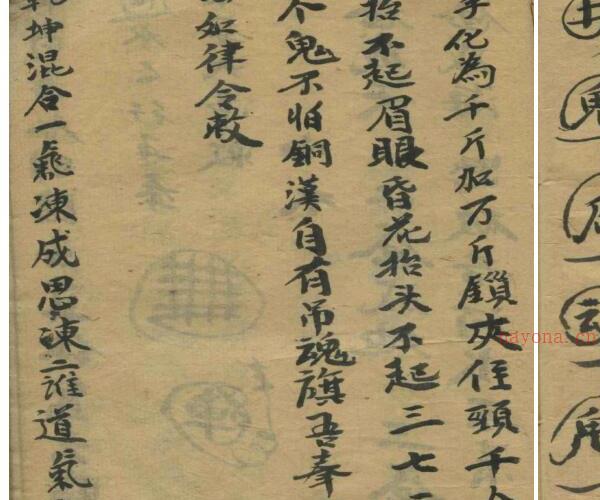 化為千斤加万斤鎖夾住頸千
抬不起眉眼昏花抬头不起三七
个鬼不怕銅漢自有吊魂旗吾奉
如律令敕
乾坤混合一氣凍成思凍二誰道氣
nayona.cn